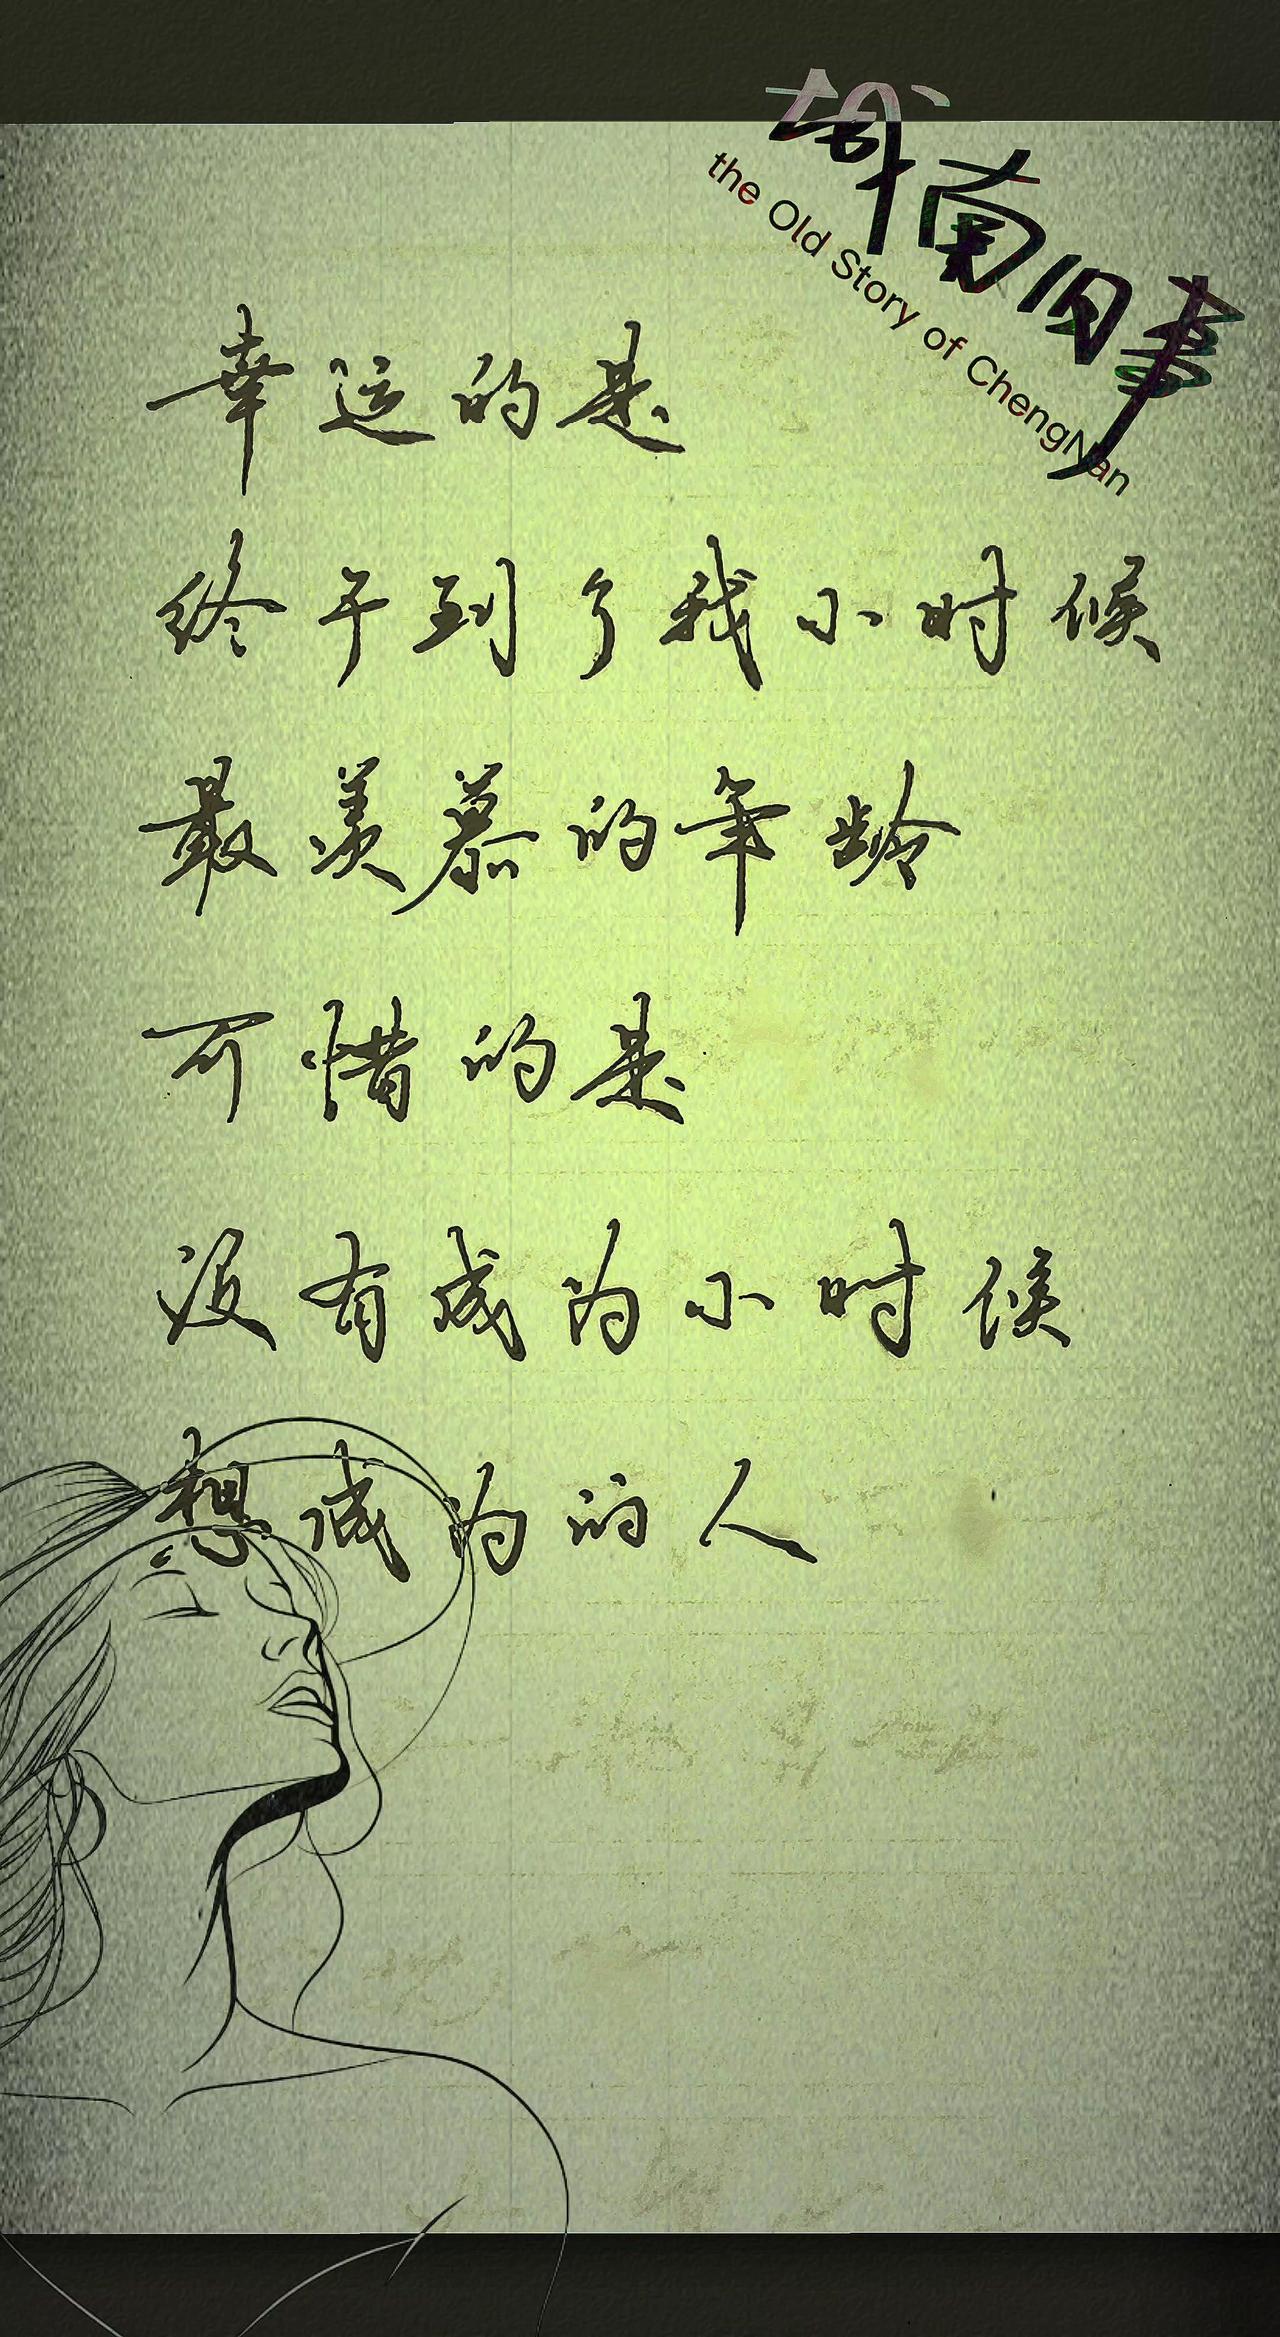 城南旧事
the Old Story of ChengNan
幸运的是
终于到了我小时候
最羡慕的年龄
可惜的是
没有成为小时候
想成为的人